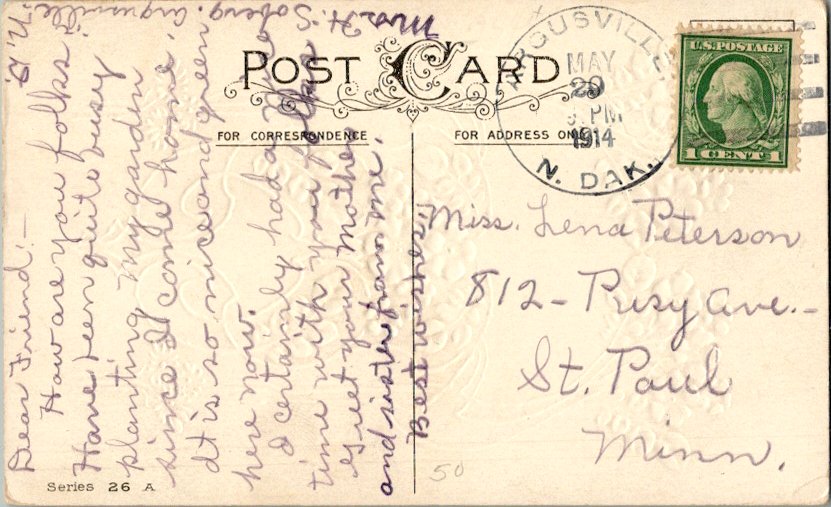 POST CARD
FOR CORRESPONDENCE
FOR ADDRESS ONLY
ARGUSVILLE
MAY
29
PM
1914
N. DAK.
U.S. POSTAGE
1 CENT 1
Miss. Lena Peterson
812 - Pusy Ave. -
St. Paul
Minn.
Dear Friend: -
How are you folks?
Have been quite busy
planting my garden
since I come home,
It is so nice and green
here now.
I certainly had a
time with you folks
Greet your Mother
and sister from me.
Best wishes:
Mrs. H. Soberg. Argusville.
N. D.
Series 26 A
50